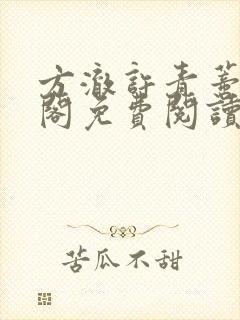 方澈許青藍
閣免費閱讀
苦瓜不甜